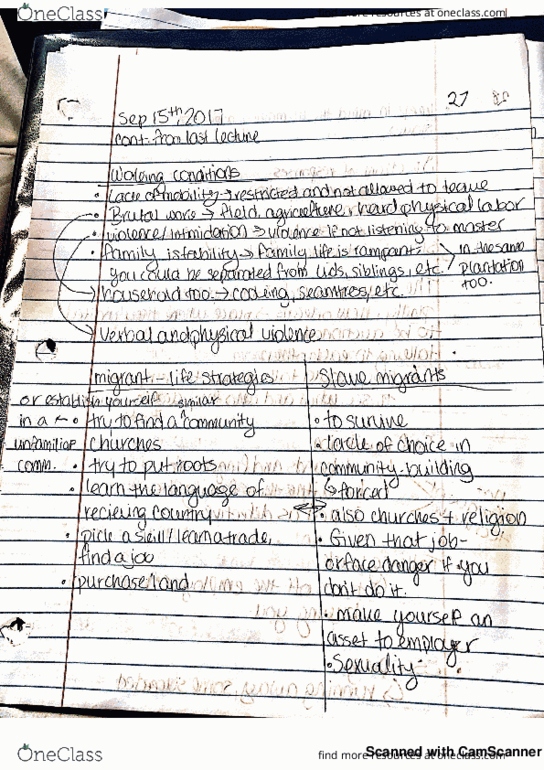 OneClass
find more resources at oneclass.com
27
Sep 15th, 2017
cont. from last lecture
Working conditions
• Lack of mobility → restricted and not allowed to leave
• Brutal work → field, agriculture, hard physical labor
• violence/intimidation → violence if not listening to master
• family instability → family life is rampant.
you could be separated from kids, siblings, etc. > in the same plantation too.
household too. → cooking, seamstress, etc.
verbal and physical violence
migrant - life strategies
or establish yourself similar
in a ← • try to find a ^ community
unfamiliar churches
comm. • try to put roots
• learn the language of
recieving country
• pick a skill/learn a trade,
find a job
• purchase land
Slave migrants
• to survive
• lack of choice in
community-building
↳ forced
• also churches + religion
• Given that job-
or face danger if you
don't do it.
• make yourself an
asset to employer
• Sexuality
OneClass
find more resources at oneclass.com
Scanned with CamScanner